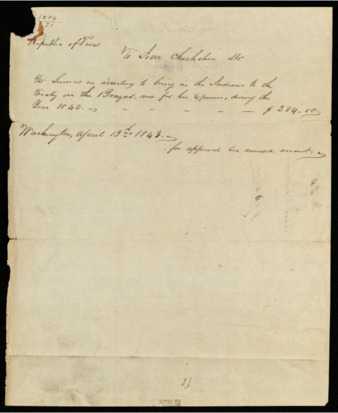 Republic of Texas
To Jesse Chisholm Dr
For Services in assisting to bring in the Indians to the
Treaty on the Brazos and for his Expenses, during the
Year 1843. $ 284.00
Washington, April 13th 1843.
for approval see annexed account